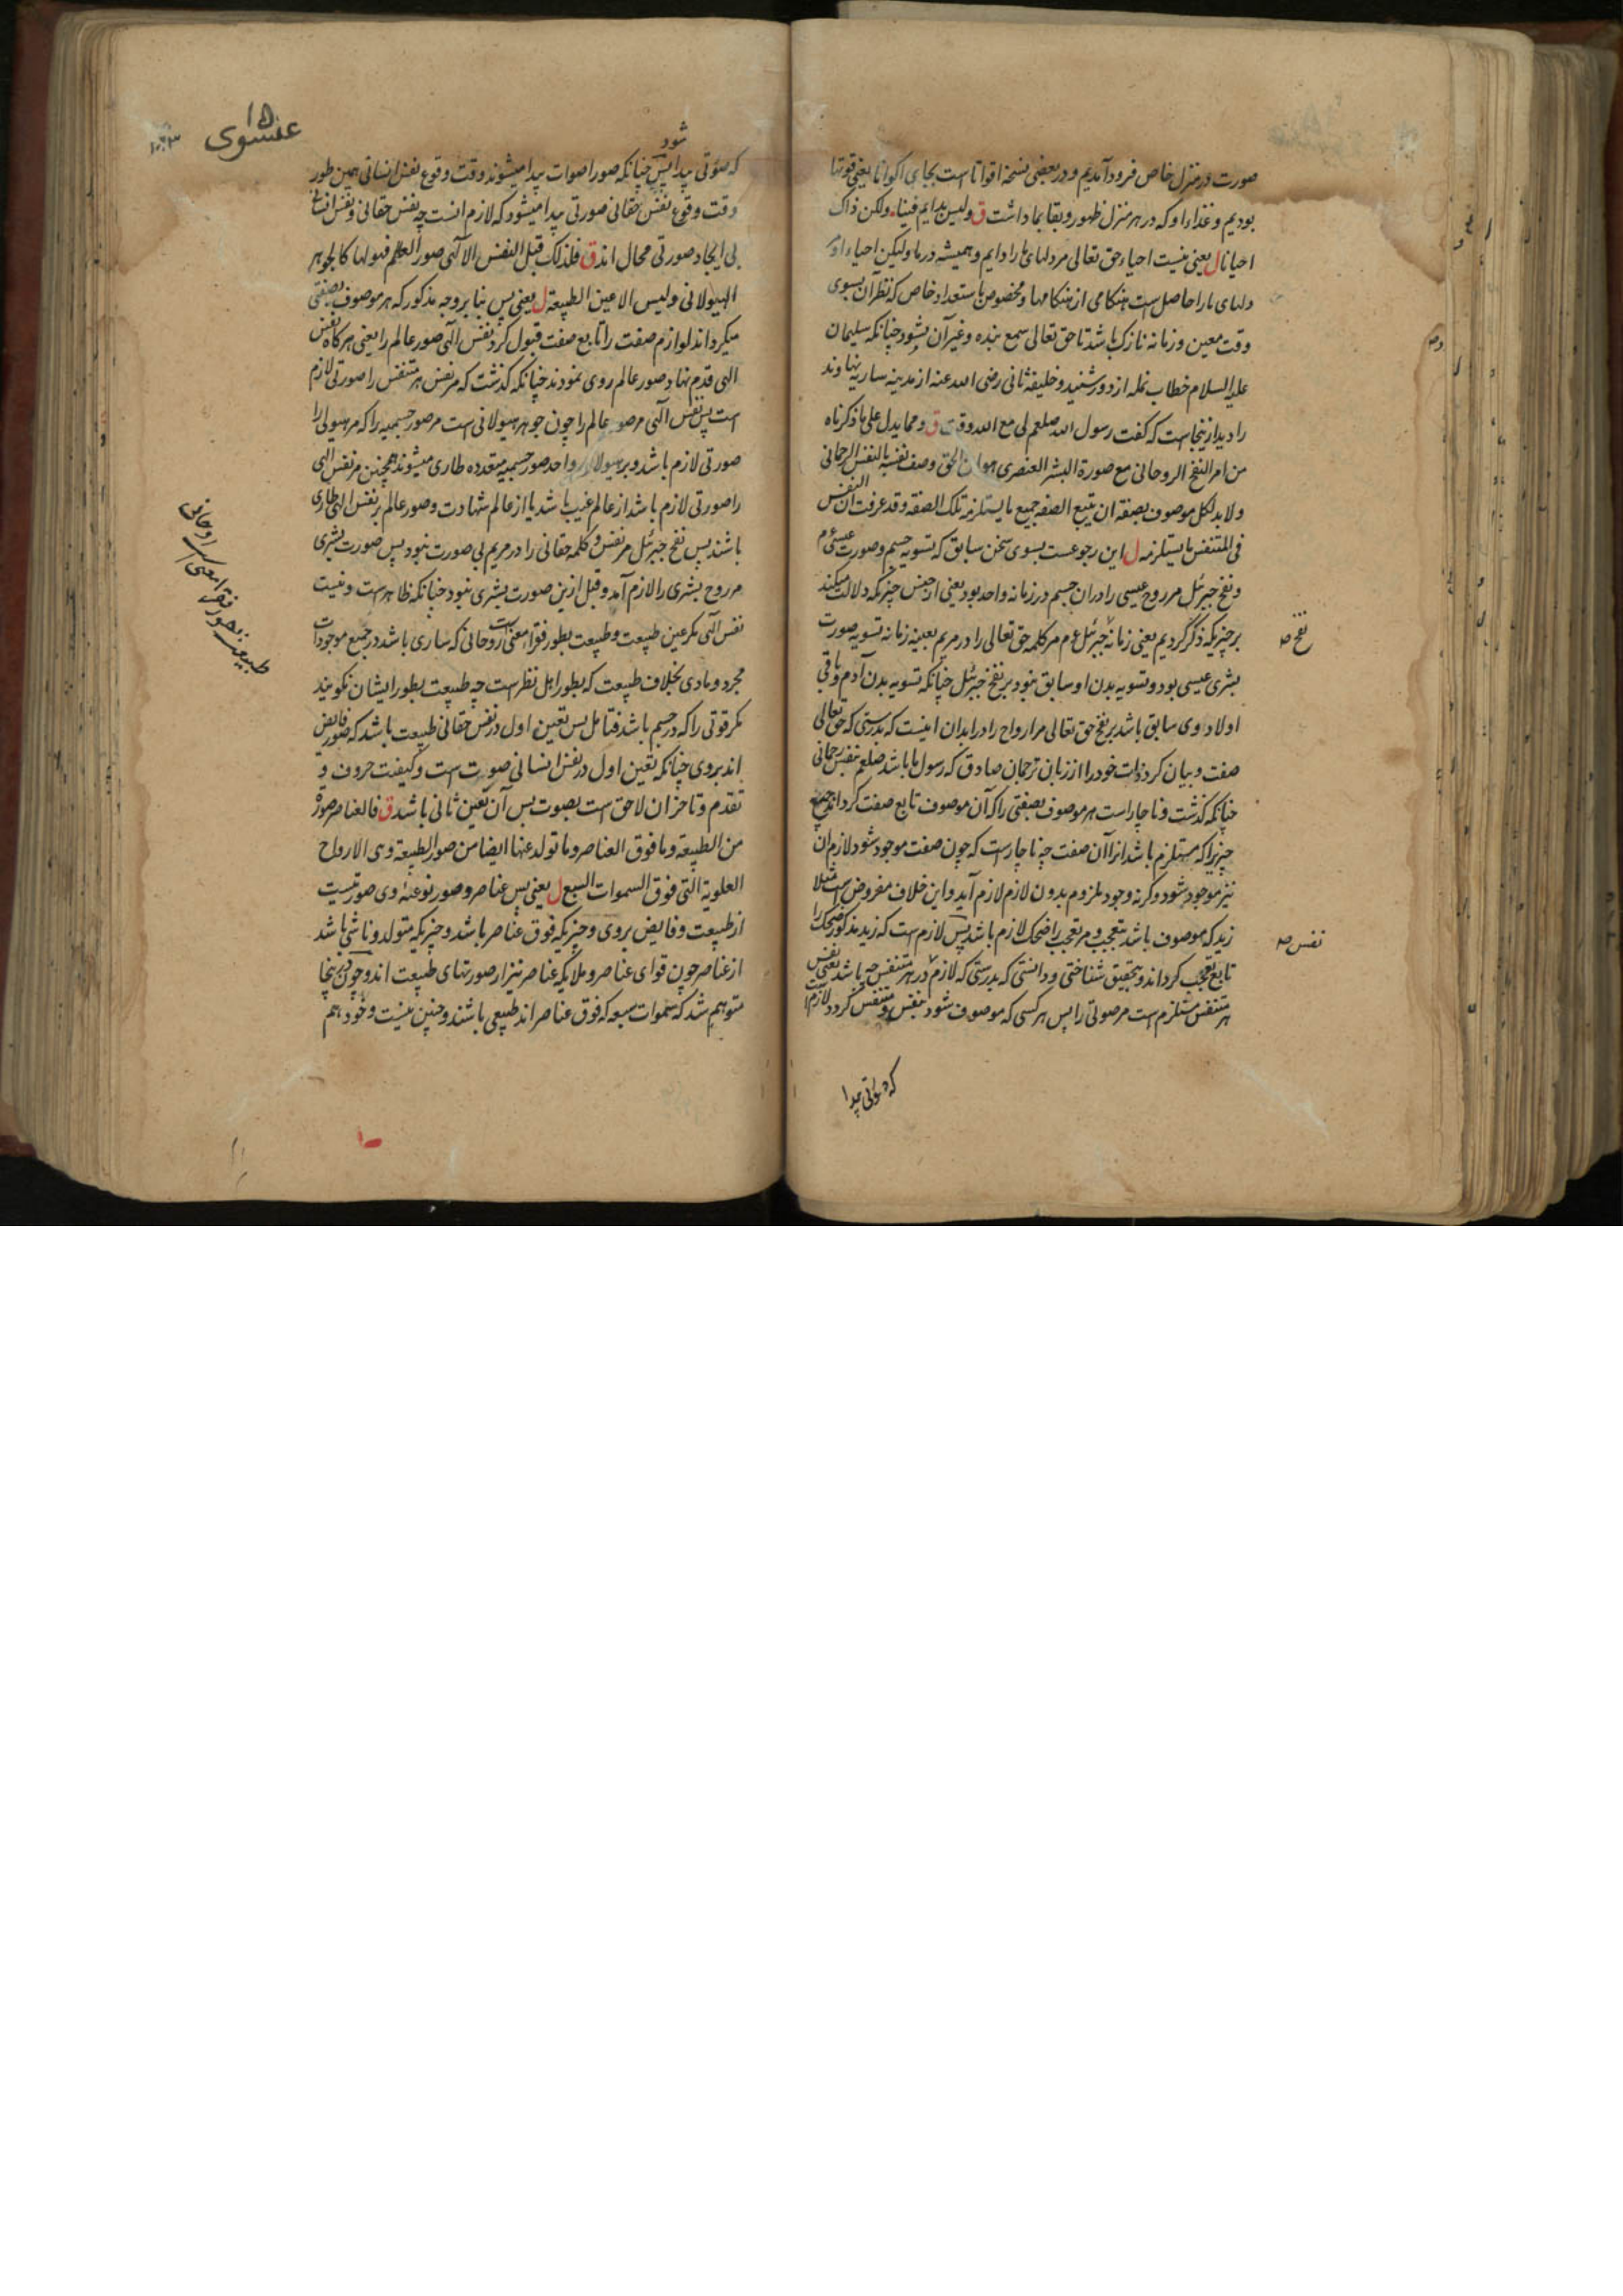 صورت در منزل خاص فرود آمدیم و در بعضی نسخه اقواتا است بجای اکوانا یعنی قوتها
بودیم و غذا و او که در هر منزل ظهور و بقا بما داشت ق ولیس بدایم فینا ولکن ذاک
احیانا ل یعنی نیست احیاء حق تعالی مر دلهای ما را دایم و همیشه در ما ولیکن احیاء او مر
دلهای ما را حاصل است هنکامی از هنکامها و مخصوص باستعداد خاص که نظر آن بسوی
وقت معین و زمانه نازک باشد تا حق تعالی سمع بنده و غیر آن بشود چنانکه سلیمان
علیه السلام خطاب نمله از دور شنید و خلیفه ثانی رضی الله عنه از مدینه ساریه نهاوند
را دید ازینجاست که کفت رسول الله صلعم لی مع الله وقت ق ومما یدل علی ما ذکرناه
من امر النفخ الروحانی مع صورة البشر العنصری هو ان الحق وصف نفسه بالنفس الرحمانی
ولا بد لکل موصوف بصفة ان یتبع الصفة جمیع ما یستلزمه تلک الصفة وقد عرفت ان النفس
فی المتنفس ما یستلزمه ل این رجوعست بسوی سخن سابق که تسویه جسم و صورت عیسی ع م
و نفخ جبرئل مر روح عیسی را دران جسم در زمانه واحد بود یعنی از جنس چیزیکه دلالت میکند
بر چیزیکه ذکر کردیم یعنی زمانه جبرئل ع م مر کلمه حق تعالی را در مریم بعینه زمانه تسویه صورت
نفخ صه
بشری عیسی بود و تسویه بدن او سابق نبود بر نفخ جبرئل چنانکه تسویه بدن آدم و باقی
اولاد وی سابق باشد بر نفخ حق تعالی مر ارواح را در ابدان اینست که بدرستی که حق تعالی
صفت و بیان کرد ذات خود را از زبان ترجمان صادق که رسول ما باشد صلعم بنفس رحمانی
چنانکه کذشت و ناچار است هر موصوف بصفتی را که آن موصوف تابع صفت کرداند جمیع
چیزیرا که مستلزم باشد انرا آن صفت چه ناچارست که چون صفت موجود شود لازم آن
نیز موجود شود و کرنه وجود ملزوم بدون لازم لازم آید و این خلاف مفروض است مثلا
زید که موصوف باشد بتعجب و مر تعجب را ضحک لازم باشد پس لازم است که زید مذکور ضحک را
نفس صه
تابع تعجب کرداند و بتحقیق شناختی و دانستی که بدرستی که لازم در هر متنفس چه باشد یعنی نفس
هر متنفس مستلزم است مر صوتی را پس هر کسی که موصوف شود بنفس و متنفس کردد لازم است
که صوتی پیدا
عیسوی
۱۵
۱۰۳
که صوتی پیدا شود پس چنانکه صور اصوات پیدا میشوند وقت وقوع نفس انسانی همین طور
وقت وقوع نفس حقانی صورتی پیدا میشود که لازم انست چه نفس حقانی و نفس انسانی
بی ایجاد صورتی محال اند ق فلذلک قبل النفس الالهی صور العالم فهو لها کالجوهر
الهیولانی ولیس الا عین الطبیعة ل یعنی پس بنا بر وجه مذکور که هر موصوف بصفتی
میکرداند لوازم صفت را تابع صفت قبول کرد نفس الهی صور عالم را یعنی هر کاه نفس
الهی قدم نهاد صور عالم روی نمودند چنانکه کذشت که مر نفس هر متنفس را صورتی لازم
است پس نفس الهی مر صور عالم را چون جوهر هیولانی است مر صور جسمیه را که مر هیولی را
صورتی لازم باشد و بر هیولای واحد صور جسمیه متعدده طاری میشوند همچنین مر نفس الهی
را صورتی لازم باشد از عالم غیب باشد یا از عالم شهادت و صور عالم بر نفس الهی طاری
باشند پس نفخ جبرئل مر نفس و کلمه حقانی را در مریم بی صورت نبود پس صورت بشری
مر روح بشری را لازم آمد و قبل ازین صورت بشری نبود چنانکه ظاهر است و نیست
نفس الهی مکر عین طبیعت و طبیعت بطور فقرا معنی است روحانی که ساری باشد در جمیع موجودات
مجرد و مادی بخلاف طبیعت که بطور اهل نظر است چه طبیعت بطور ایشان نکویند
مکر قوتی را که در جسم باشد فتامل پس تعین اول در نفس حقانی طبیعت باشد که صور فایض
اند بروی چنانکه تعین اول در نفس انسانی صوت است و کیفیت حروف و
تقدم و تاخر ان لاحق است بصوت پس آن تعین ثانی باشد ق فالعناصر صورة
من الطبیعة وما فوق العناصر وما تولد عنها ایضا من صور الطبیعة وهی الارواح
العلویة التی فوق السموات السبع ل یعنی پس عناصر و صور نوعیه وی صورتیست
از طبیعت و فایض بروی و چیزیکه فوق عناصر باشد و چیزیکه متولد و ناشی باشد
از عناصر چون قوای عناصر و ملائکه عناصر نیز از صورتهای طبیعت اند و چون ازینجا
متوهم شد که سموات سبعه که فوق عناصر اند طبیعی باشند و چنین نیست و خود هم
طبیعت بطور فقرا معنی است روحانی